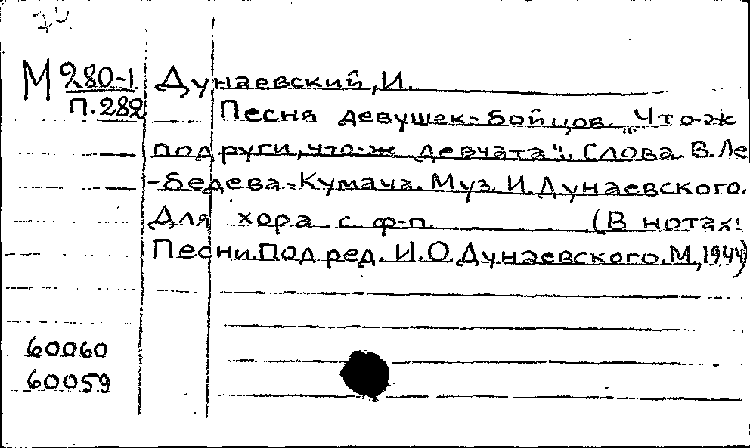 М 280-1 Дунаевский, И.
П.282 Песня девушек-бойцов. „Что-ж
подруги, что-ж девчата". Слова В. Ле
-бедева-Кумача. Муз. И. Дунаевского.
Для хора с ф-п. (В нотах:
Песни. Под ред. И. О. Дунаевского. М., 1944)
60060
60059